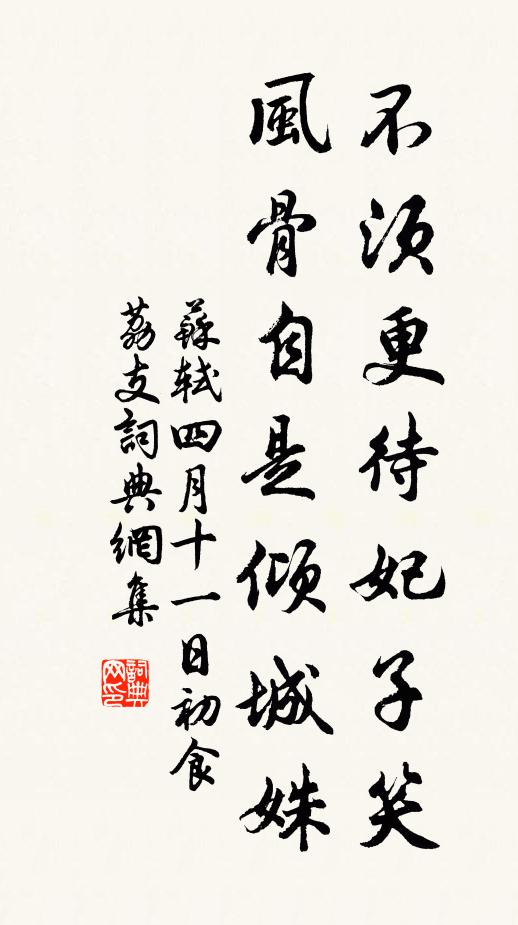 不須更待妃子笑
風骨自是傾城姝
蘇軾四月十一日初食
荔支詞典網集
詞典網印